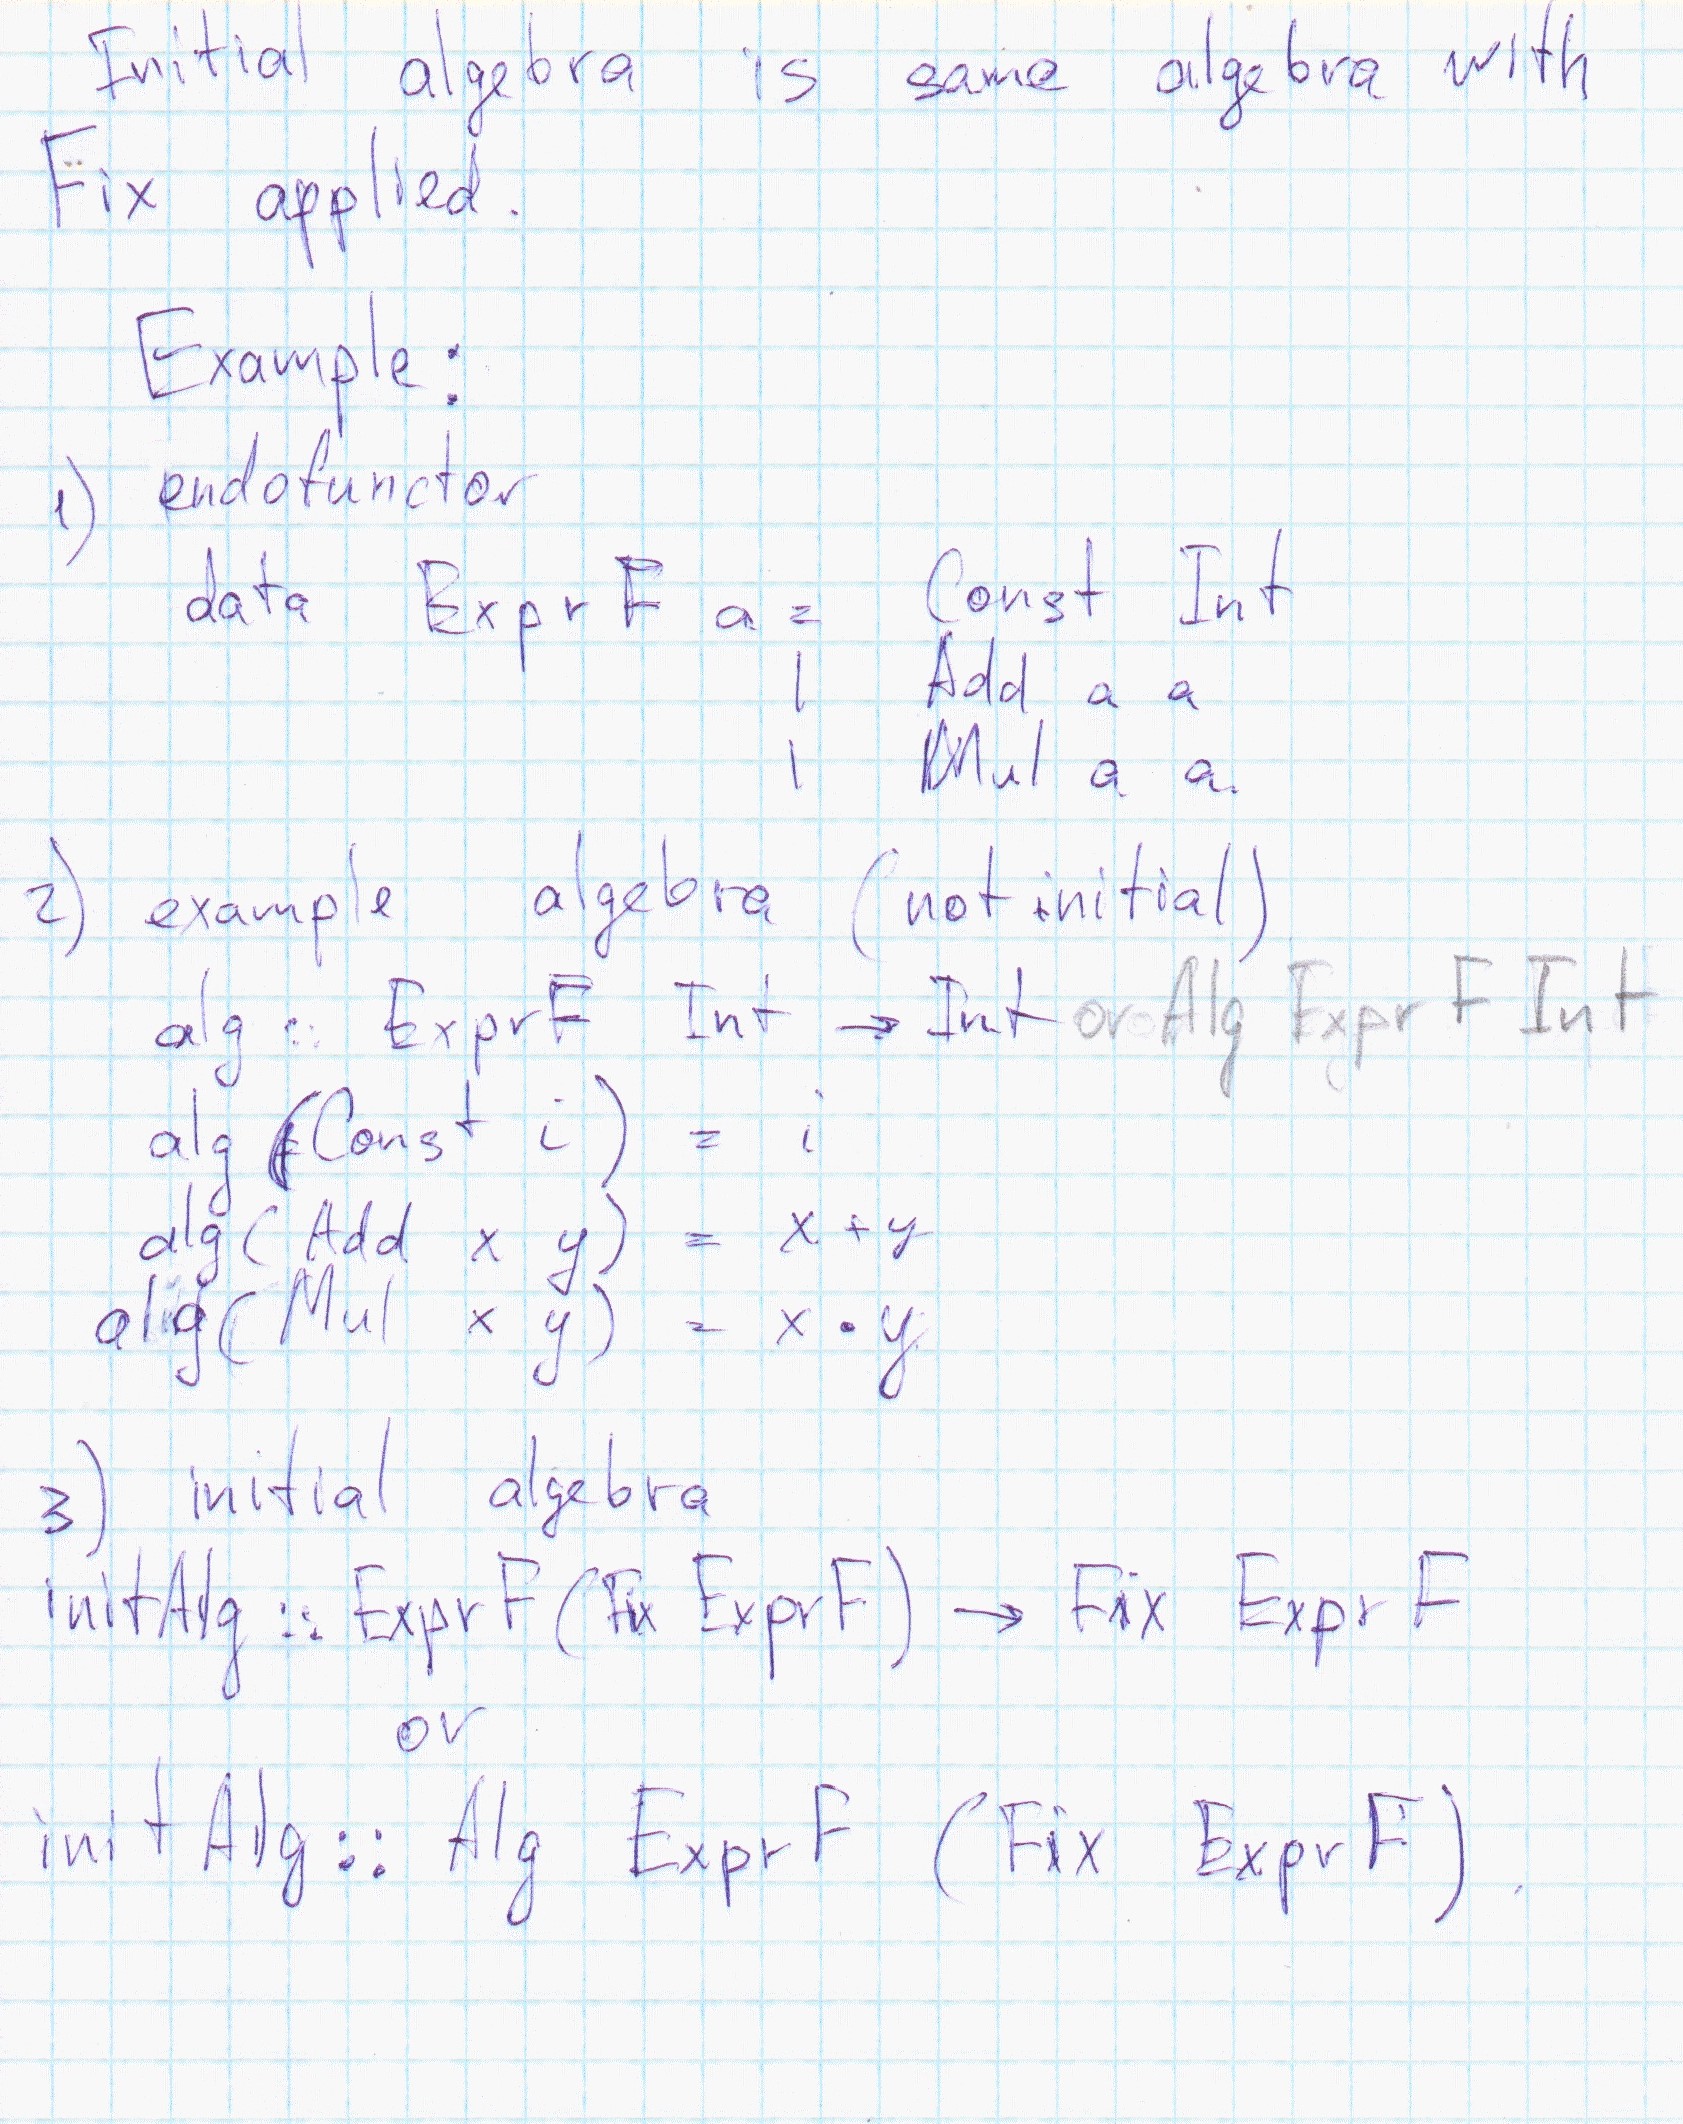 Initial algebra is same algebra with
Fix applied.
Example:
1) endofunctor
data ExprF a = Const Int
| Add a a
| Mul a a.
2) example algebra (not initial)
alg :: ExprF Int → Int or Alg ExprF Int
alg (Const i) = i
alg (Add x y) = x + y
alg (Mul x y) = x · y
3) initial algebra
initAlg :: ExprF (Fix ExprF) → Fix ExprF
or
initAlg :: Alg ExprF (Fix ExprF).